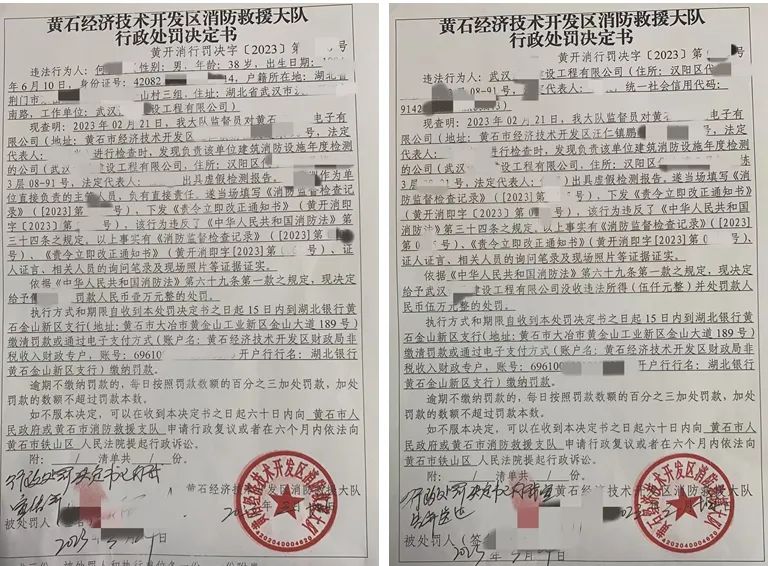 黄石经济技术开发区消防救援大队
行政处罚决定书
黄开消行罚决字〔2023〕第 号
违法行为人：何 性别：男，年龄：38岁，出生日期：
年6月10日，身份证号：42082 14，户籍所在地：湖北省
荆门市 山村三组，住址：湖北省武汉市
南路，工作单位：武汉 设工程有限公司）
现查明：2023年02月21日，我大队监督员对黄石 电子有
限公司（地址：黄石市经济技术开发区 ，法定
代表人： 进行检查时，发现负责该单位建筑消防设施年度检测
的公司（武汉 建设工程有限公司，住所：汉阳区
3层08-91号，法定代表人： 出具虚假检测报告。 作为单
位直接负责的主 人员，负有直接责任。遂当场填写《消防监督检查记
录》（〔2023〕第 号），下发《责令立即改正通知书》（黄开消即
字〔2023〕 号），该行为违反了《中华人民共和国消防法》第
三十四条之规定，以上事实有《消防监督检查记录》（〔2023〕第
号）、《责令立即改正通知书》（黄开消即字〔2023〕第 号）、
证人证言、相关人员的询问笔录及现场照片等证据证实。
依据《中华人民共和国消防法》第六十九条第一款之规定，现决定
给予何 罚款人民币壹万元整的处罚。
执行方式和期限自收到本处罚决定书之日起15日内到湖北银行黄
石金山新区支行(地址：黄石市大冶市黄金山工业新区金山大道189号)
缴清罚款或通过电子支付方式（账户名：黄石经济技术开发区财政局非
税收入财政专户，账号：69610 开户行行名：湖北银行
黄石金山新区支行）缴纳罚款。
逾期不缴纳罚款的，每日按照罚款数额的百分之三加处罚款，加处
罚款的数额不超过罚款本数。
如不服本决定，可以在收到本决定书之日起六十日内向 黄石市人
民政府或黄石市消防救援支队 申请行政复议或者在六个月内依法向
黄石市铁山区 人民法院提起行政诉讼。
附： / 清单共 / 份。
行政处罚决定书已
黄石经济技术开发区消防救援大队
被处罚人（签名）
2023
黄石经济技术开发区消防救援大队
行政处罚决定书
黄开消行罚决字〔2023〕第 号
违法行为人：武汉 建设工程有限公司（住所：汉阳区
08-91号， 定代表人： 统一社会信用代码：
9142 ）
现查明：2023年02月21日，我大队监督员对黄石 电子有
限公司（地址：黄石市经济技术开发区汪仁镇鹏 号，法定
代表人： 进行检查时，发现负责该单位建筑消防设施年度检测
的公司（武汉 建设工程有限公司，住所：汉阳区
3层08-91号，法定代表人： ）出具虚假检测报告。遂当场填写《消
防监督检查记录》（〔2023〕第 号），下发《责令立即改正通知书》
（黄开消即字〔2023〕第 号），该行为违反了《中华人民共和国消
防法》第三十四条之规定，以上事实有《消防监督检查记录》（〔2023〕
第 号）、《责令立即改正通知书》（黄开消即字〔2023〕第 号）、
证人证言、相关人员的询问笔录及现场照片等证据证实。
依据《中华人民共和国消防法》第六十九条第一款之规定，现决定
给予武汉 建设工程有限公司没收违法所得（伍仟元整）并处罚款人
民币伍万元整的处罚。
执行方式和期限自收到本处罚决定书之日起15日内到湖北银行黄
石金山新区支行(地址：黄石市大冶市黄金山工业新区金山大道189号)
缴清罚款或通过电子支付方式（账户名：黄石经济技术开发区财政局非
税收入财政专户，账号：69610 开户行行名：湖北银行
黄石金山新区支行）缴纳罚款。
逾期不缴纳罚款的，每日按照罚款数额的百分之三加处罚款，加处
罚款的数额不超过罚款本数。
如不服本决定，可以在收到本决定书之日起六十日内向 黄石市人
民政府或黄石市消防救援支队 申请行政复议或者在六个月内依法向
黄石市铁山区 人民法院提起行政诉讼。
附： / 清单共 / 份。
行政处罚决定书已
黄石经济技术开发区消防救援大队
4202040004020
被处罚人（签
2023